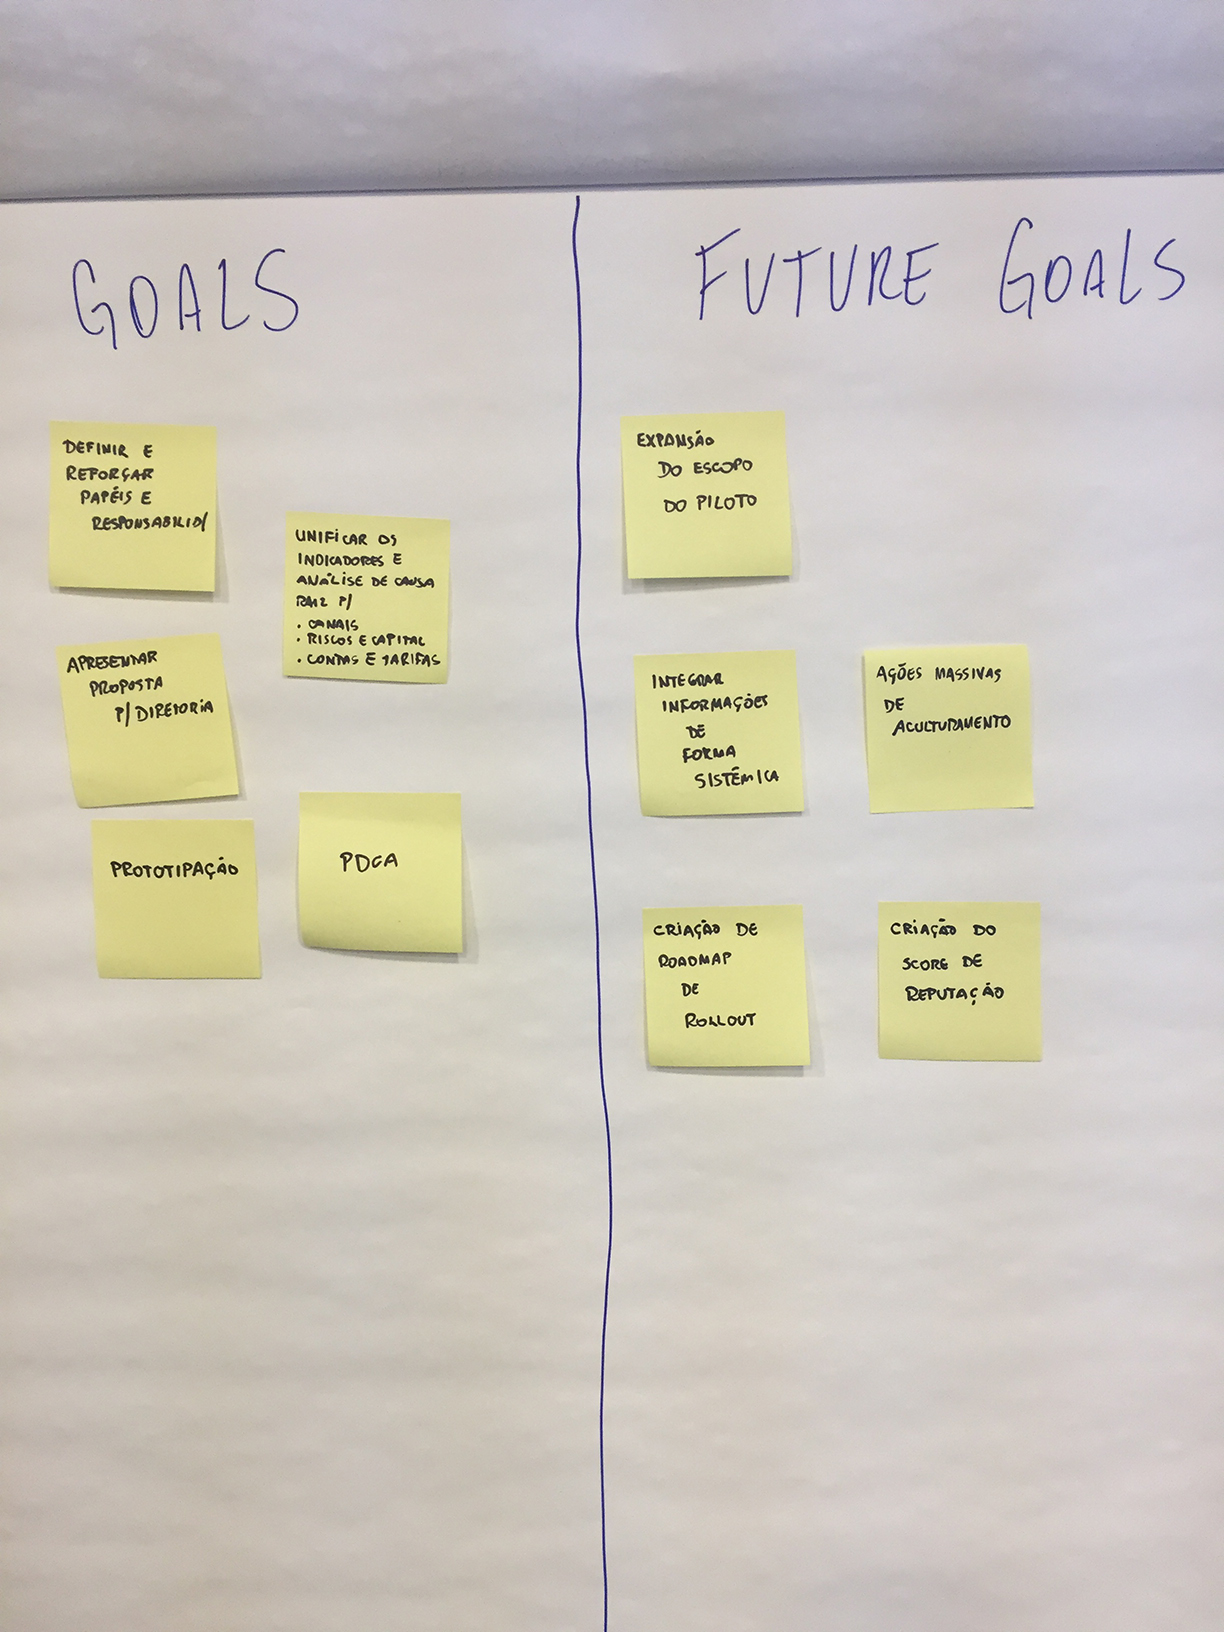 GOALS
DEFINIR E
REFORÇAR
PAPÉIS E
RESPONSABILID/
UNIFICAR OS
INDICADORES E
ANÁLISE DE CAUSA
RAIZ P/
. CANAIS
. RISCOS E CAPITAL
. CONTAS E TARIFAS
APRESENTAR
PROPOSTA
P/ DIRETORIA
PROTOTIPAÇÃO
PDCA
FUTURE GOALS
EXPANSÃO
DO ESCOPO
DO PILOTO
INTEGRAR
INFORMAÇÕES
DE
FORMA
SISTÊMICA
AÇÕES MASSIVAS
DE
ACULTURAMENTO
CRIAÇÃO DE
ROADMAP
DE
ROLLOUT
CRIAÇÃO DO
SCORE DE
REPUTAÇÃO